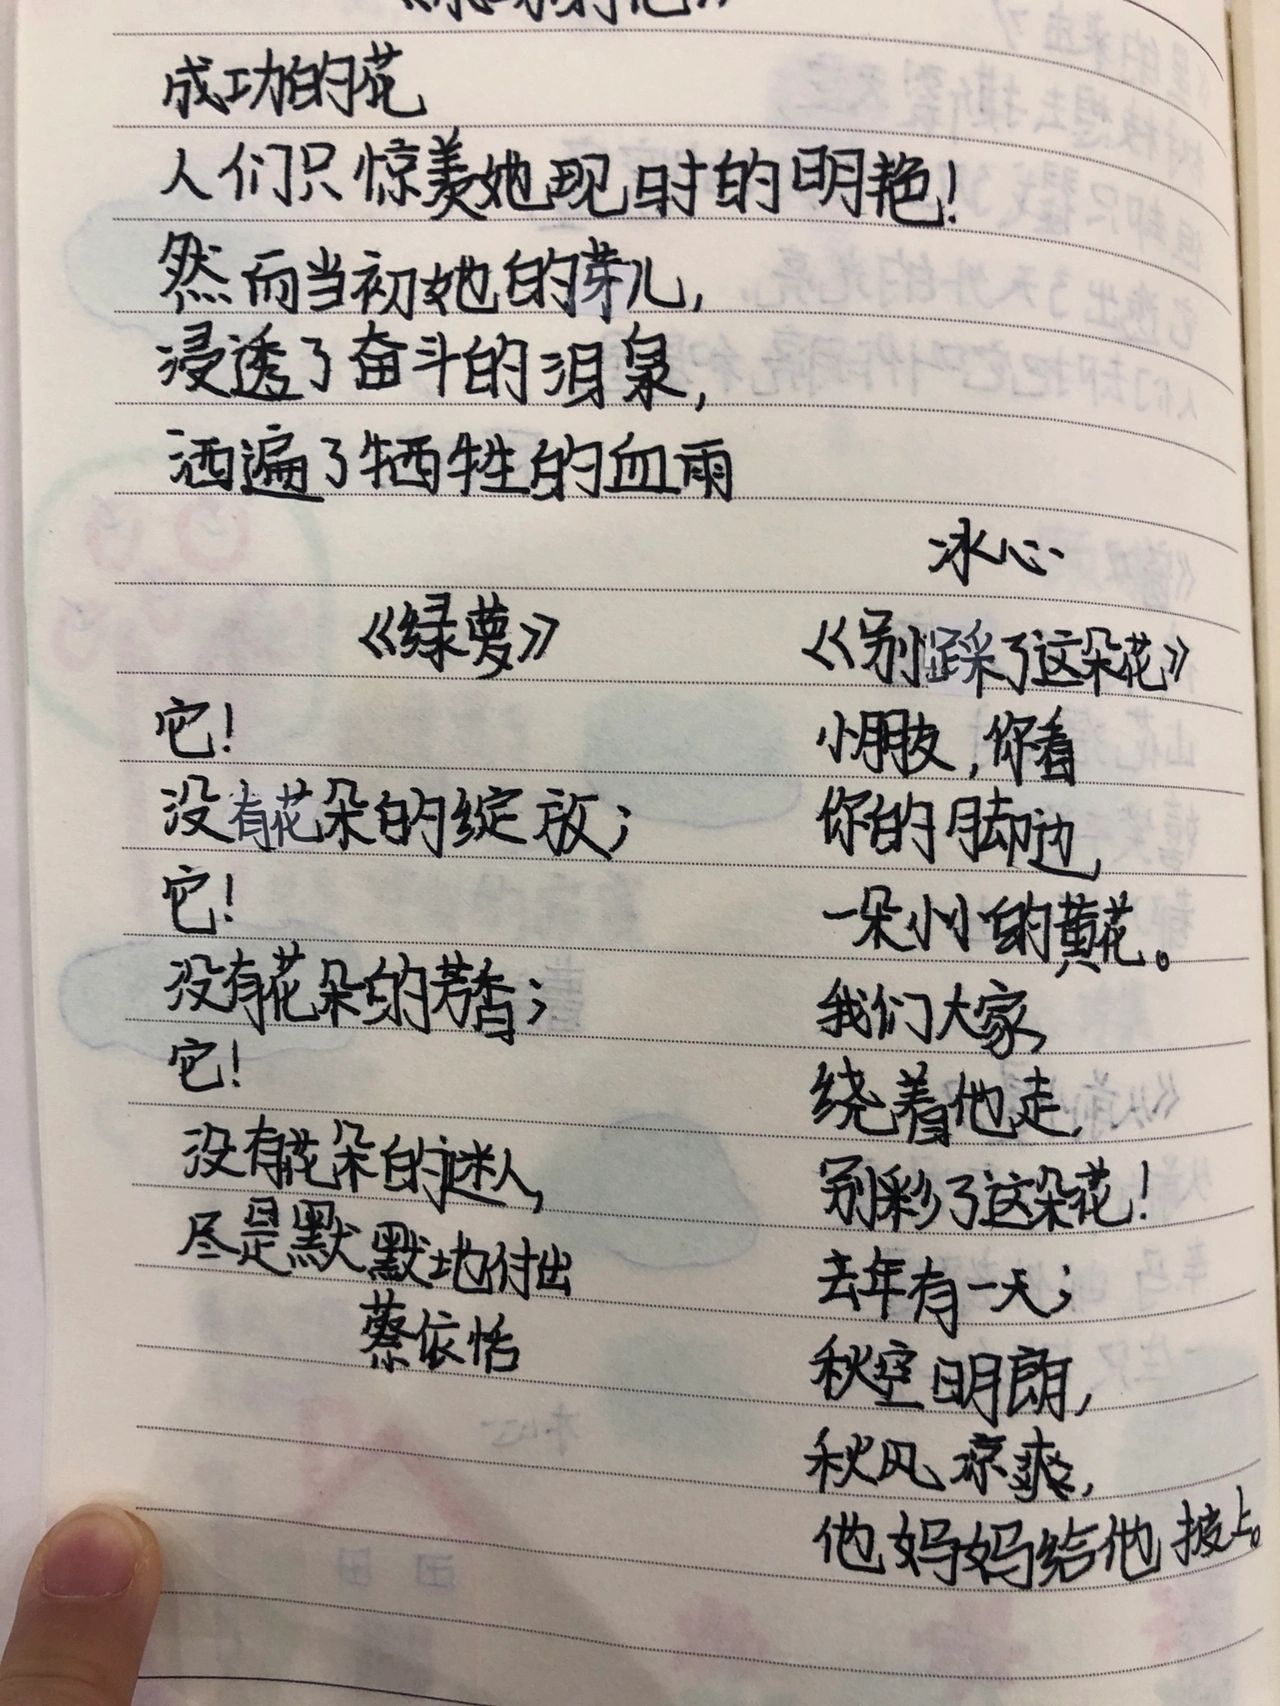 《成功的花》
成功的花
人们只惊羡她现时的明艳！
然而当初她的芽儿，
浸透了奋斗的泪泉，
洒遍了牺牲的血雨
冰心
《绿萝》
它！
没有花朵的绽放；
它！
没有花朵的芳香；
它！
没有花朵的迷人，
尽是默默地付出
蔡依恬
《别踩了这朵花》
小朋友，你看
你的脚边，
一朵小小的黄花。
我们大家，
绕着他走，
别彩了这朵花！
去年有一天；
秋空明朗，
秋风凉爽，
他妈妈给他披上。